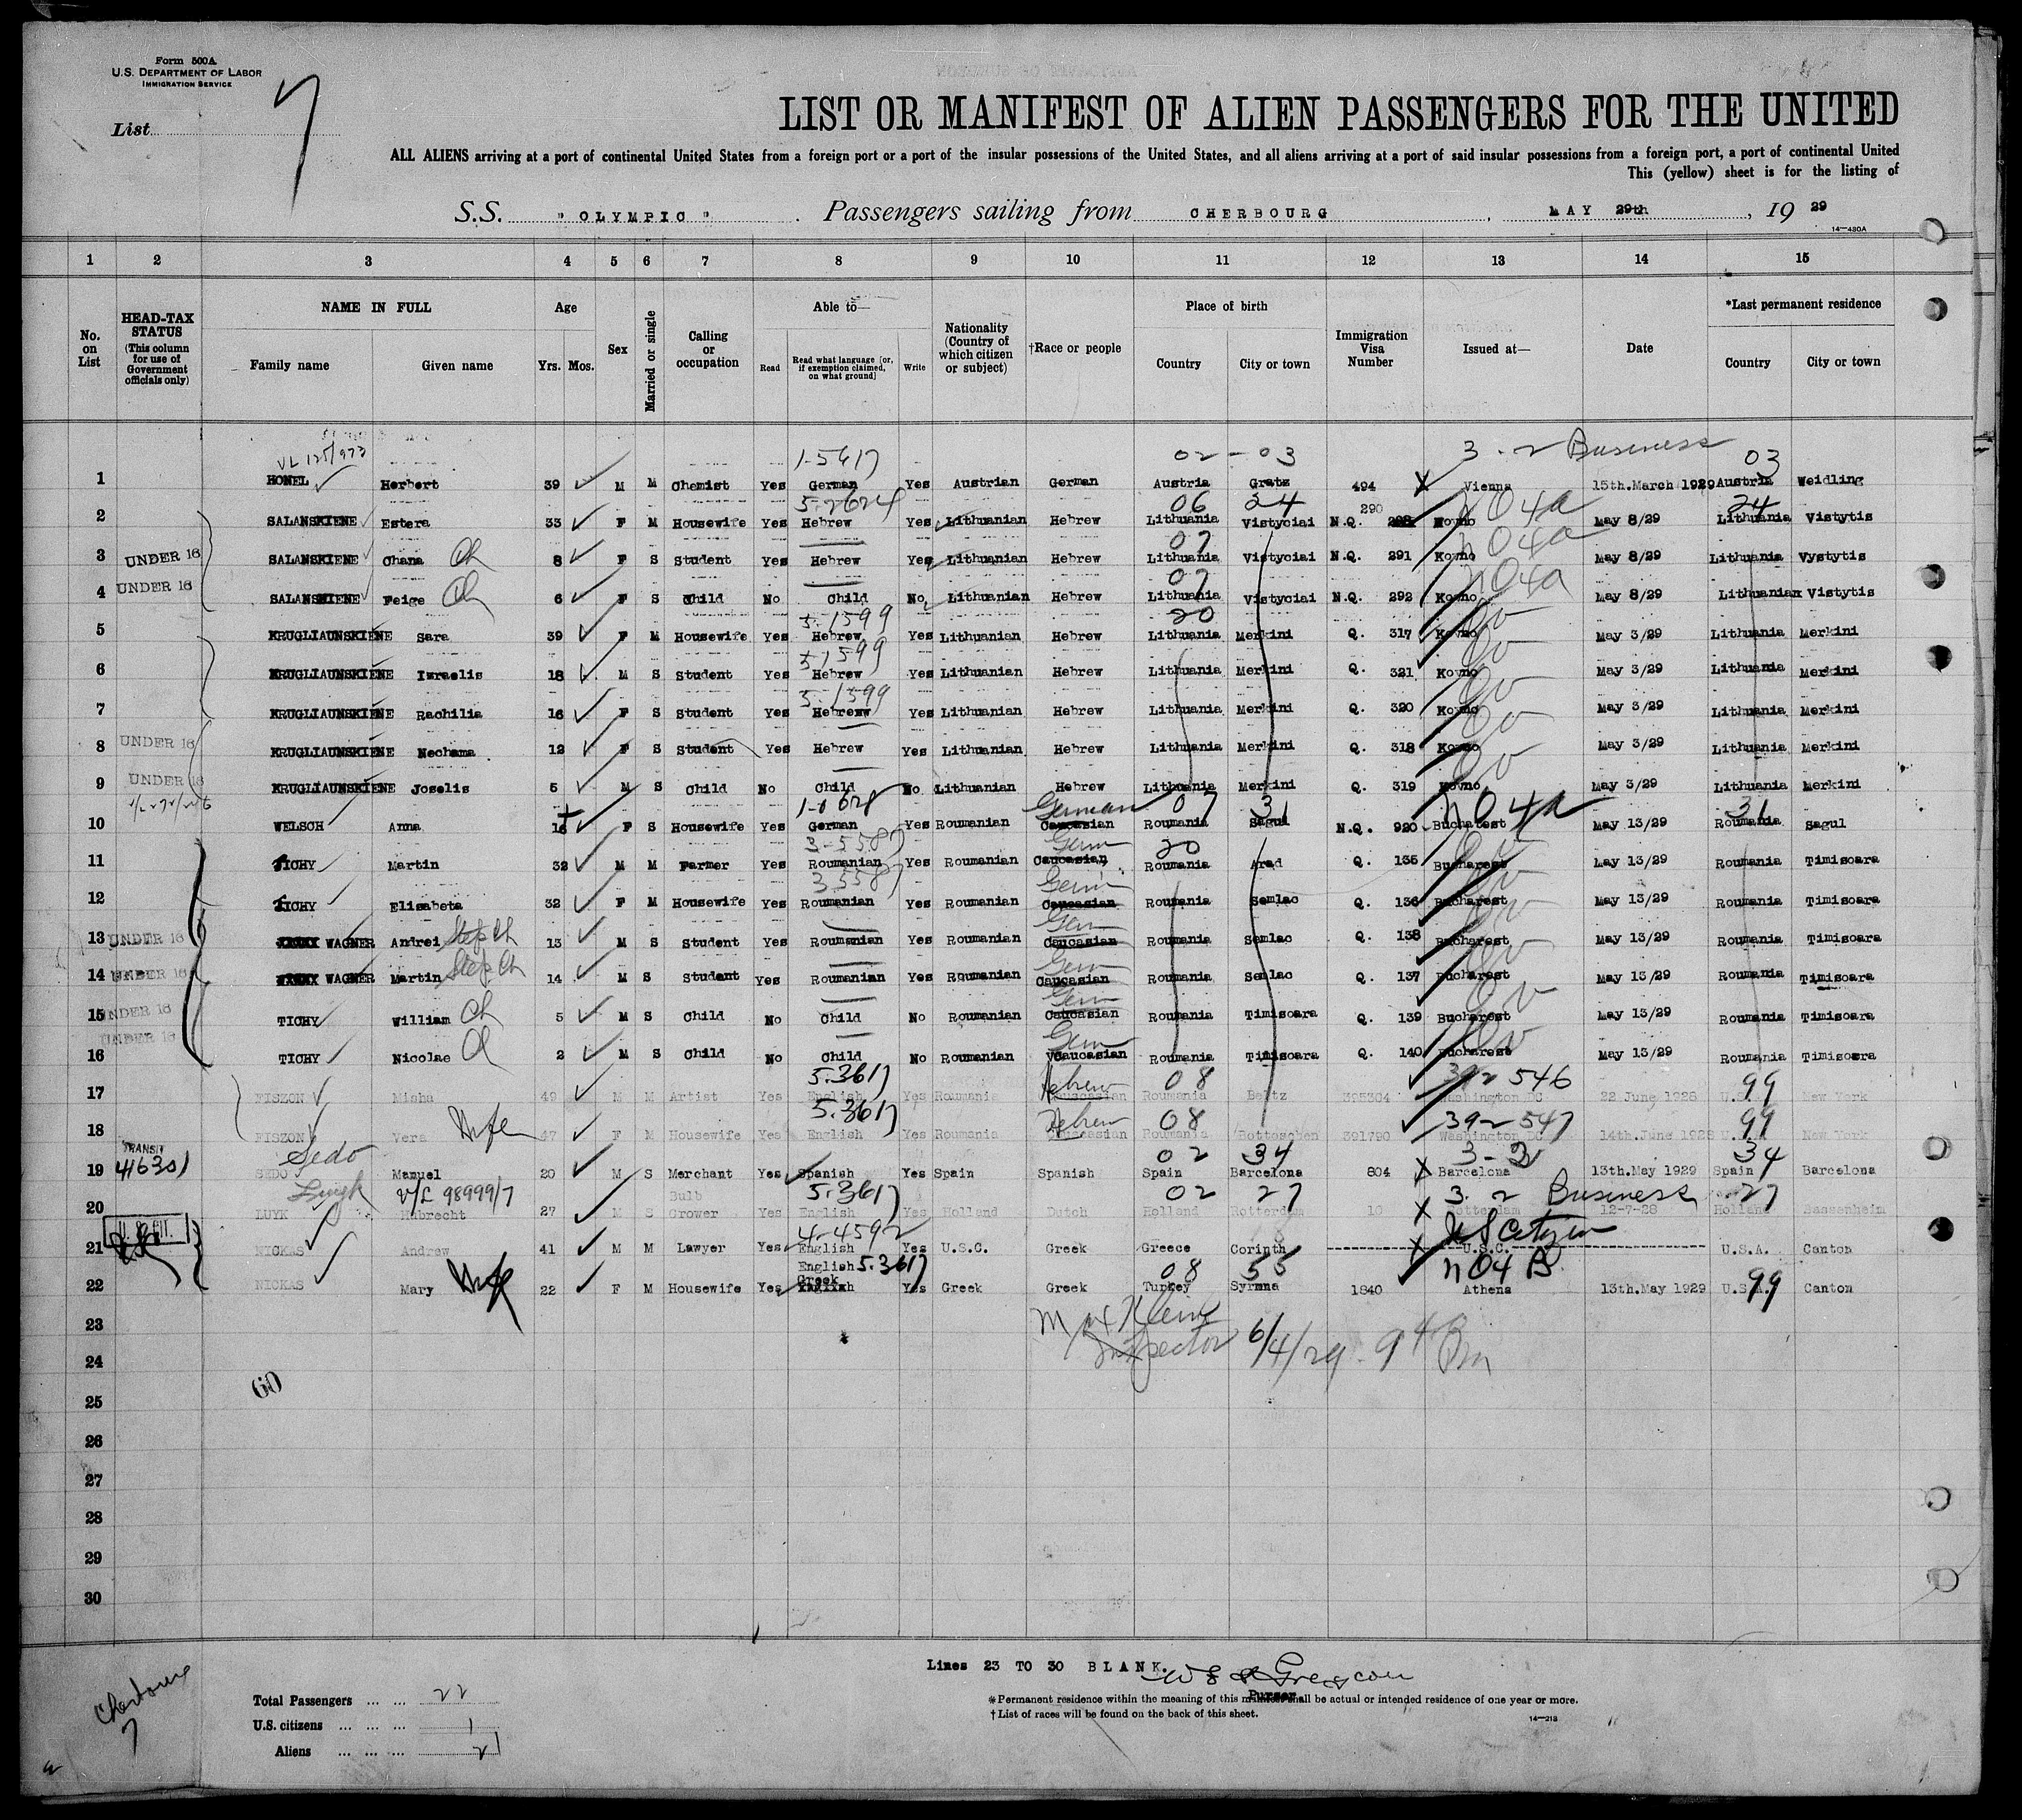 Form 500A
U.S. DEPARTMENT OF LABOR
IMMIGRATION SERVICE
List 7
LIST OR MANIFEST OF ALIEN PASSENGERS FOR THE UNITED
ALL ALIENS arriving at a port of continental United States from a foreign port or a port of the insular possessions of the United States, and all aliens arriving at a port of said insular possessions from a foreign port, a port of continental United
This (yellow) sheet is for the listing of
S.S. "OLYMPIC". Passengers sailing from CHERBOURG, MAY 29th, 19 29
14—430A
1 2 3 4 5 6 7 8 9 10 11 12 13 14 15
No. on List
HEAD-TAX STATUS (This column for use of Government officials only)
NAME IN FULL
Family name Given name
Age
Yrs. Mos.
Sex
Married or single
Calling or occupation
Able to—
Read Read what language [or, if exemption claimed, on what ground] Write
Nationality (Country of which citizen or subject)
†Race or people
Place of birth
Country City or town
Immigration Visa Number
Issued at—
Date
*Last permanent residence
Country City or town
VL 125/973 1-5617 02 - 03 3 - 2 Business 03
1 HONEL Herbert 39 M M Chemist Yes German Yes Austrian German Austria Gratz 494 Vienna 15th.March 1929 Austria Weidling
5-2624 06 24 290 NO4a 24
2 SALANSKIENE Estera 33 F M Housewife Yes Hebrew Yes Lithuanian Hebrew Lithuania Vistyciai N.Q. Kovno May 8/29 Lithuania Vistytis
07 NO4a
3 UNDER 16 SALANSKIENE Chana Ch 8 F S Student Yes Hebrew Yes Lithuanian Hebrew Lithuania Vistyciai N.Q. 291 Kovno May 8/29 Lithuania Vystytis
07 NO4a
4 UNDER 16 SALANSKIENE Feige Ch 6 F S Child No Child No Lithuanian Hebrew Lithuania Vistyciai N.Q. 292 Kovno May 8/29 Lithuanian Vistytis
5-1599 20 Qv
5 KRUGLIAUNSKIENE Sara 39 F M Housewife Yes Hebrew Yes Lithuanian Hebrew Lithuania Merkini Q. 317 Kovno May 3/29 Lithuania Merkini
5-1599 Qv
6 KRUGLIAUNSKIENE Israelis 18 M S Student Yes Hebrew Yes Lithuanian Hebrew Lithuania Merkini Q. 321 Kovno May 3/29 Lithuania Merkini
5-1599 Qv
7 KRUGLIAUNSKIENE Rachilia 16 F S Student Yes Hebrew Yes Lithuanian Hebrew Lithuania Merkini Q. 320 Kovno May 3/29 Lithuania Merkini
Qv
8 UNDER 16 KRUGLIAUNSKIENE Nechama 12 F S Student Yes Hebrew Yes Lithuanian Hebrew Lithuania Merkini Q. 318 Kovno May 3/29 Lithuania Merkini
Qv
9 UNDER 16 KRUGLIAUNSKIENE Joselis 5 M S Child No Child No Lithuanian Hebrew Lithuania Merkini Q. 319 Kovno May 3/29 Lithuania Merkini
German 07 31 NO4a 31
10 WELSCH Anna 16 F S Housewife Yes German Yes Roumanian Caucasian Roumania Sagul N.Q. 920 Bucharest May 13/29 Roumania Sagul
3-558 Germ 20 Qv
11 TICHY Martin 32 M M Farmer Yes Roumanian Yes Roumanian Caucasian Roumania Arad Q. 135 Bucharest May 13/29 Roumania Timisoara
3558 Germ Qv
12 TICHY Elisabeta 32 F M Housewife Yes Roumanian Yes Roumanian Caucasian Roumania Semlac Q. 136 Bucharest May 13/29 Roumania Timisoara
Germ Qv
13 UNDER 16 WAGNER Andrei Step Ch 13 M S Student Yes Roumanian Yes Roumanian Caucasian Roumania Semlac Q. 138 Bucharest May 13/29 Roumania Timisoara
Germ Qv
14 UNDER 16 WAGNER Martin Step Ch 14 M S Student Yes Roumanian Yes Roumanian Caucasian Roumania Semlac Q. 137 Bucharest May 13/29 Roumania Timisoara
Germ Qv
15 UNDER 16 TICHY William Ch 5 M S Child No Child No Roumanian Caucasian Roumania Timisoara Q. 139 Bucharest May 13/29 Roumania Timisoara
Germ Qv
16 UNDER 16 TICHY Nicolae Ch 2 M S Child No Child No Roumanian Caucasian Roumania Timisoara Q. 140 Bucharest May 13/29 Roumania Timisoara
5.3617 Hebrew 08 392 546 99
17 FISZON Misha 49 M M Artist Yes English Yes Roumania Caucasian Roumania Beltz 395304 Washington DC 22 June 1928 U.S.A. New York
5.3617 Hebrew 08 392-547 99
18 FISZON Vera Wife 47 F M Housewife Yes English Yes Roumania Caucasian Roumania 391790 Washington DC 14th.June 1928 U.S.A. New York
TRANSIT Sedo 02 34 3-2 34
19 416301 SEDO Manuel 20 M S Merchant Yes Spanish Yes Spain Spanish Spain Barcelona 804 Barcelona 13th.May 1929 Spain Barcelona
V/L 98999/7 Bulb 5.3617 02 27 3-2 Business 27
20 LUYK Hubrecht 27 M S Grower Yes English Yes Holland Dutch Holland Rotterdam 10 Rotterdam 12-7-28 Holland Sassenheim
4-4592 U S Citizen
21 NICKAS Andrew 41 M M Lawyer Yes English Yes U.S.C. Greek Greece Corinth U.S.C. U.S.A. Canton
English 5.3617 08 55 NO4 B
22 NICKAS Mary Wife 22 F M Housewife Yes Greek English Yes Greek Greek Turkey Syrmna 1840 Athens 13th.May 1929 U.S.A. 99 Canton
23
Max Klein
Inspector 6/4/29
24
60
25
26
27
28
29
30
Lines 23 TO 30 BLANK.
Purser
Cherbourg
7
Total Passengers ... ... 22
U.S. citizens ... ... ... 1
Aliens ... ... ... 21
*Permanent residence within the meaning of this manifest shall be actual or intended residence of one year or more.
†List of races will be found on the back of this sheet.
14—213